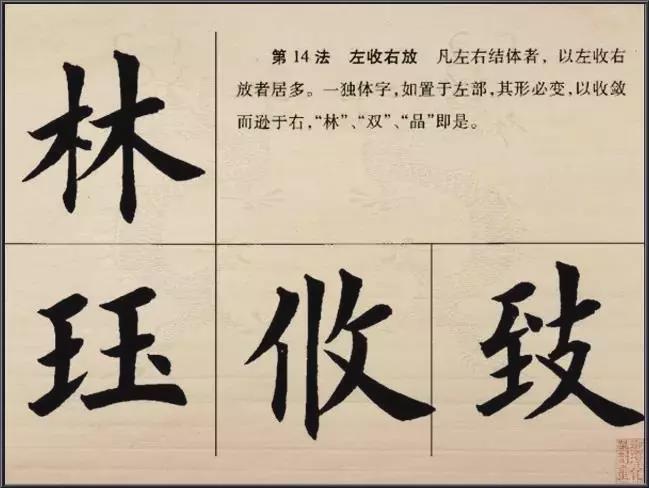 林
第14法 左收右放 凡左右结体者，以左收右
放者居多。一独体字，如置于左部，其形必变，以收敛
而逊于右，“林”、“双”、“品”即是。
珏 攸 致